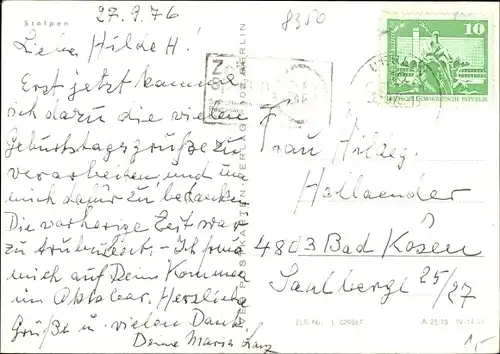 27.9.76
8350
Stolpen
Liebe Hilde H!
Erst jetzt komme
ich dazu die vielen
Geburtstagsgrüße zu
verarbeiten und um
mich dafür zu bedanken
Die vorherige Zeit war
zu turbulent. - Ich freue
mich auf Dein Kommen
im Oktober. Herzliche
Grüße u. vielen Dank!
Deine Maria
10
DEUTSCHE DEMOKRATISCHE REPUBLIK
Frau Hildeg.
Hollaender
4803 Bad Kösen
Saalberge 25/27
BERLIN
L 0298/67
A 25 75 IV-14-
15